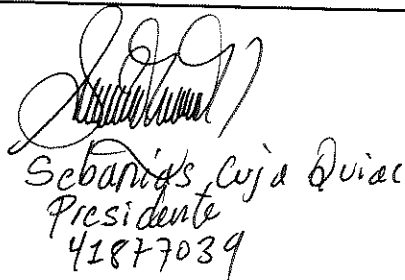 Sebanías Cuja Quiac
Presidente
41877039